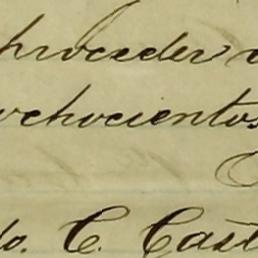 proceder
ochocientos
do. C. Cast